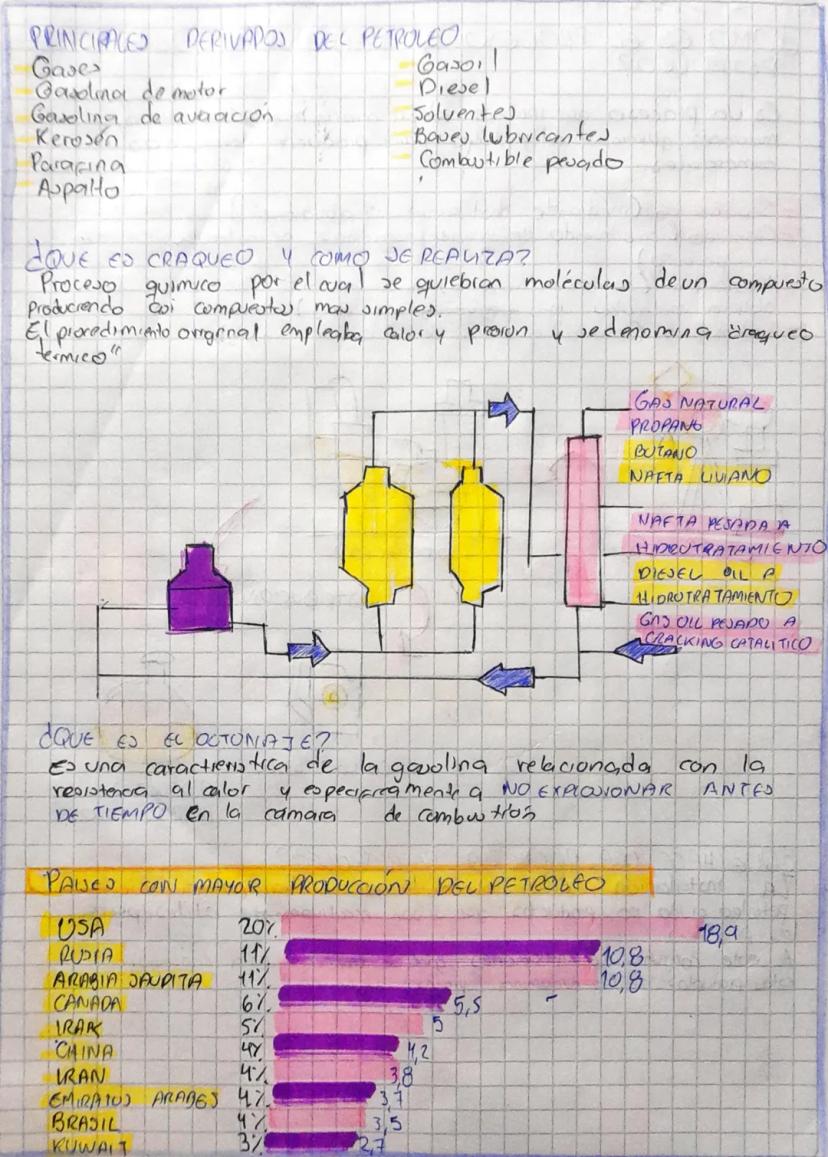 PRINCIPALES DERIVADOS DEL PETROLEO
Gases
Gasolina de motor
Gasolina de aviación
Kerosén
Parafina
Aspalto
Gasoil
Diesel
Solventes
Bases lubricantes
Combustible pesado
¿QUE ES CRAQUEO Y COMO SE REALIZA?
Proceso quimico por el cual se quiebran moléculas de un compuesto
produciendo asi compuestos mas simples.
El procedimiento original empleaba calor y presion y se denomina "craqueo
termico"
GAS NATURAL
PROPANO
BUTANO
NAFTA LIVIANO
NAFTA PESADA A
HIDROTRATAMIENTO
DIESEL OIL A
HIDROTRATAMIENTO
GAS OIL PESADO A
CRACKING CATALITICO
¿QUE ES EL OCTONAJE?
Es una caracteristica de la gasolina relacionada con la
resistencia al calor y especificamente a NO EXPLOSIONAR ANTES
DE TIEMPO en la cámara de combustion
PAISES CON MAYOR PRODUCCIÓN DEL PETROLEO
USA 20% 18,9
RUSIA 11% 10,8
ARABIA SAUDITA 11% 10,8
CANADA 6% 5,5
IRAK 5% 5
CHINA 4% 4,2
IRAN 4% 3,8
EMIRATOS ARABES 4% 3,7
BRASIL 4% 3,5
KUWAIT 3% 2,7